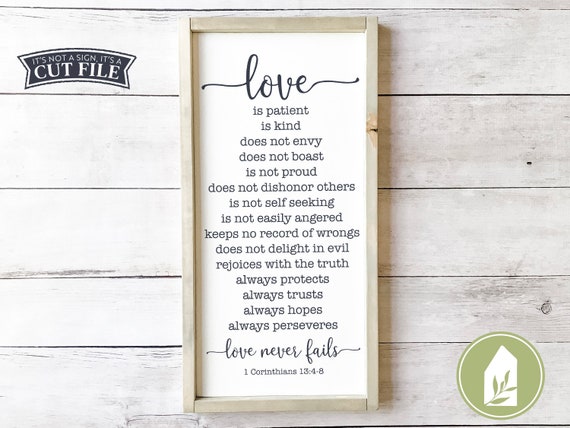 IT'S NOT A SIGN, IT'S A
CUT FILE
love
is patient
is kind
does not envy
does not boast
is not proud
does not dishonor others
is not self seeking
is not easily angered
keeps no record of wrongs
does not delight in evil
rejoices with the truth
always protects
always trusts
always hopes
always perseveres
love never fails
1 Corinthians 13:4-8